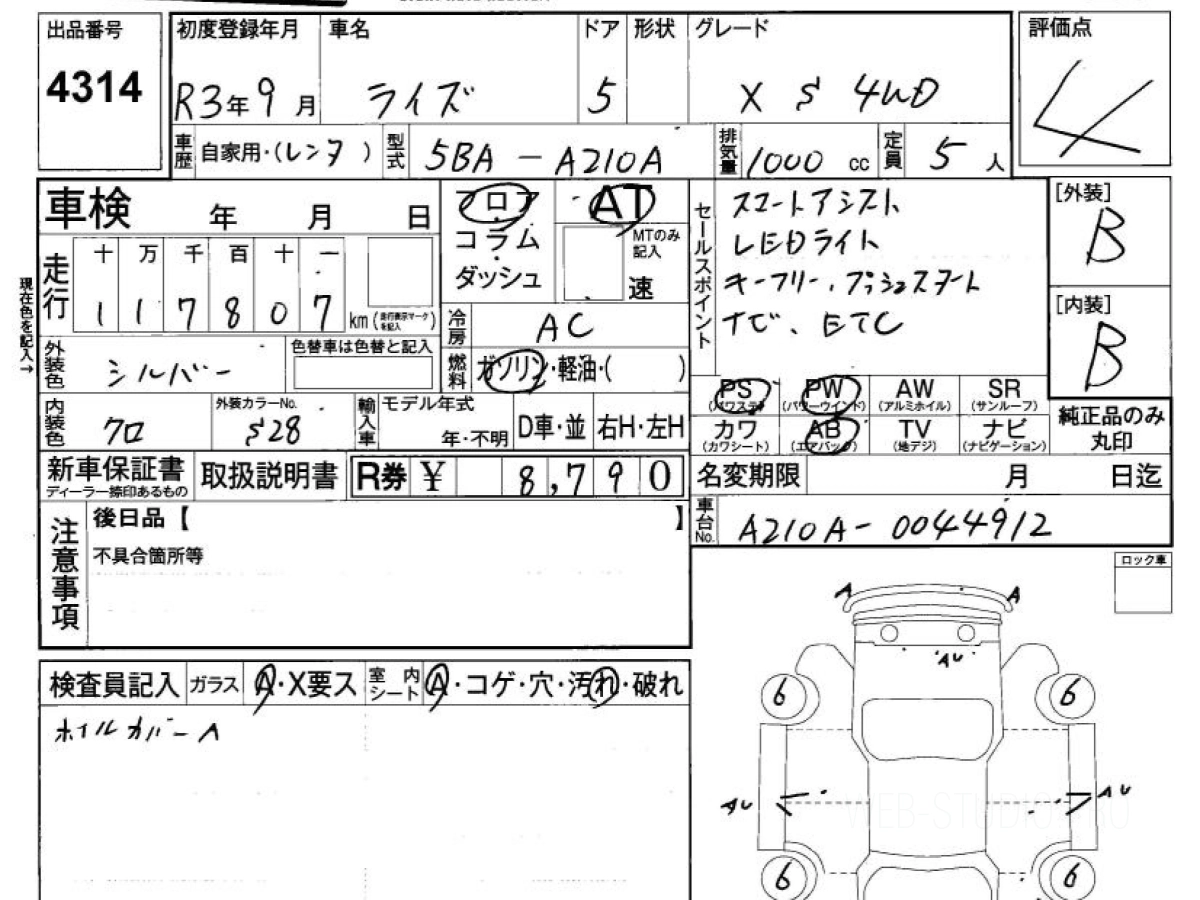 出品番号 初度登録年月 車名 ドア 形状 グレード 評価点
4314 R3年9月 ライズ 5 X S 4WD 4
車歴 自家用・(レンタ) 型式 5BA-A210A 排気量 1000cc 定員 5人
車検 年 月 日 フロア コラム ダッシュ AT MTのみ記入 速
セールスポイント
スマートアシスト
LEDライト
キーフリー、プッシュスタート
ナビ、ETC
[外装]
B
[内装]
B
現在色を記入→
走行 十 万 千 百 十 一
1 1 7 8 0 7 km (走行表示マークを記入)
冷房 AC
外装色 シルバー 色替車は色替と記入 燃料 ガソリン・軽油・( )
PS (パワステ) PW (パワーウインド) AW (アルミホイル) SR (サンルーフ)
カワ (カワシート) AB (エアバック) TV (地デジ) ナビ (ナビゲーション)
純正品のみ
丸印
内装色 クロ 外装カラーNo. S28 輸入車 モデル年式 年・不明 D車・並 右H・左H
新車保証書 ディーラー捺印あるもの 取扱説明書 R券 ¥ 8,790 名変期限 月 日迄
車台No. A210A-0044912
注意事項 後日品【 】
不具合箇所等
ロック車
検査員記入 ガラス A・X要ス 室内シート A・コゲ・穴・汚れ・破れ
ホイルカバーA
A A
AU
6 6
AU AU
WEB-STUDIO4.RU
6 6